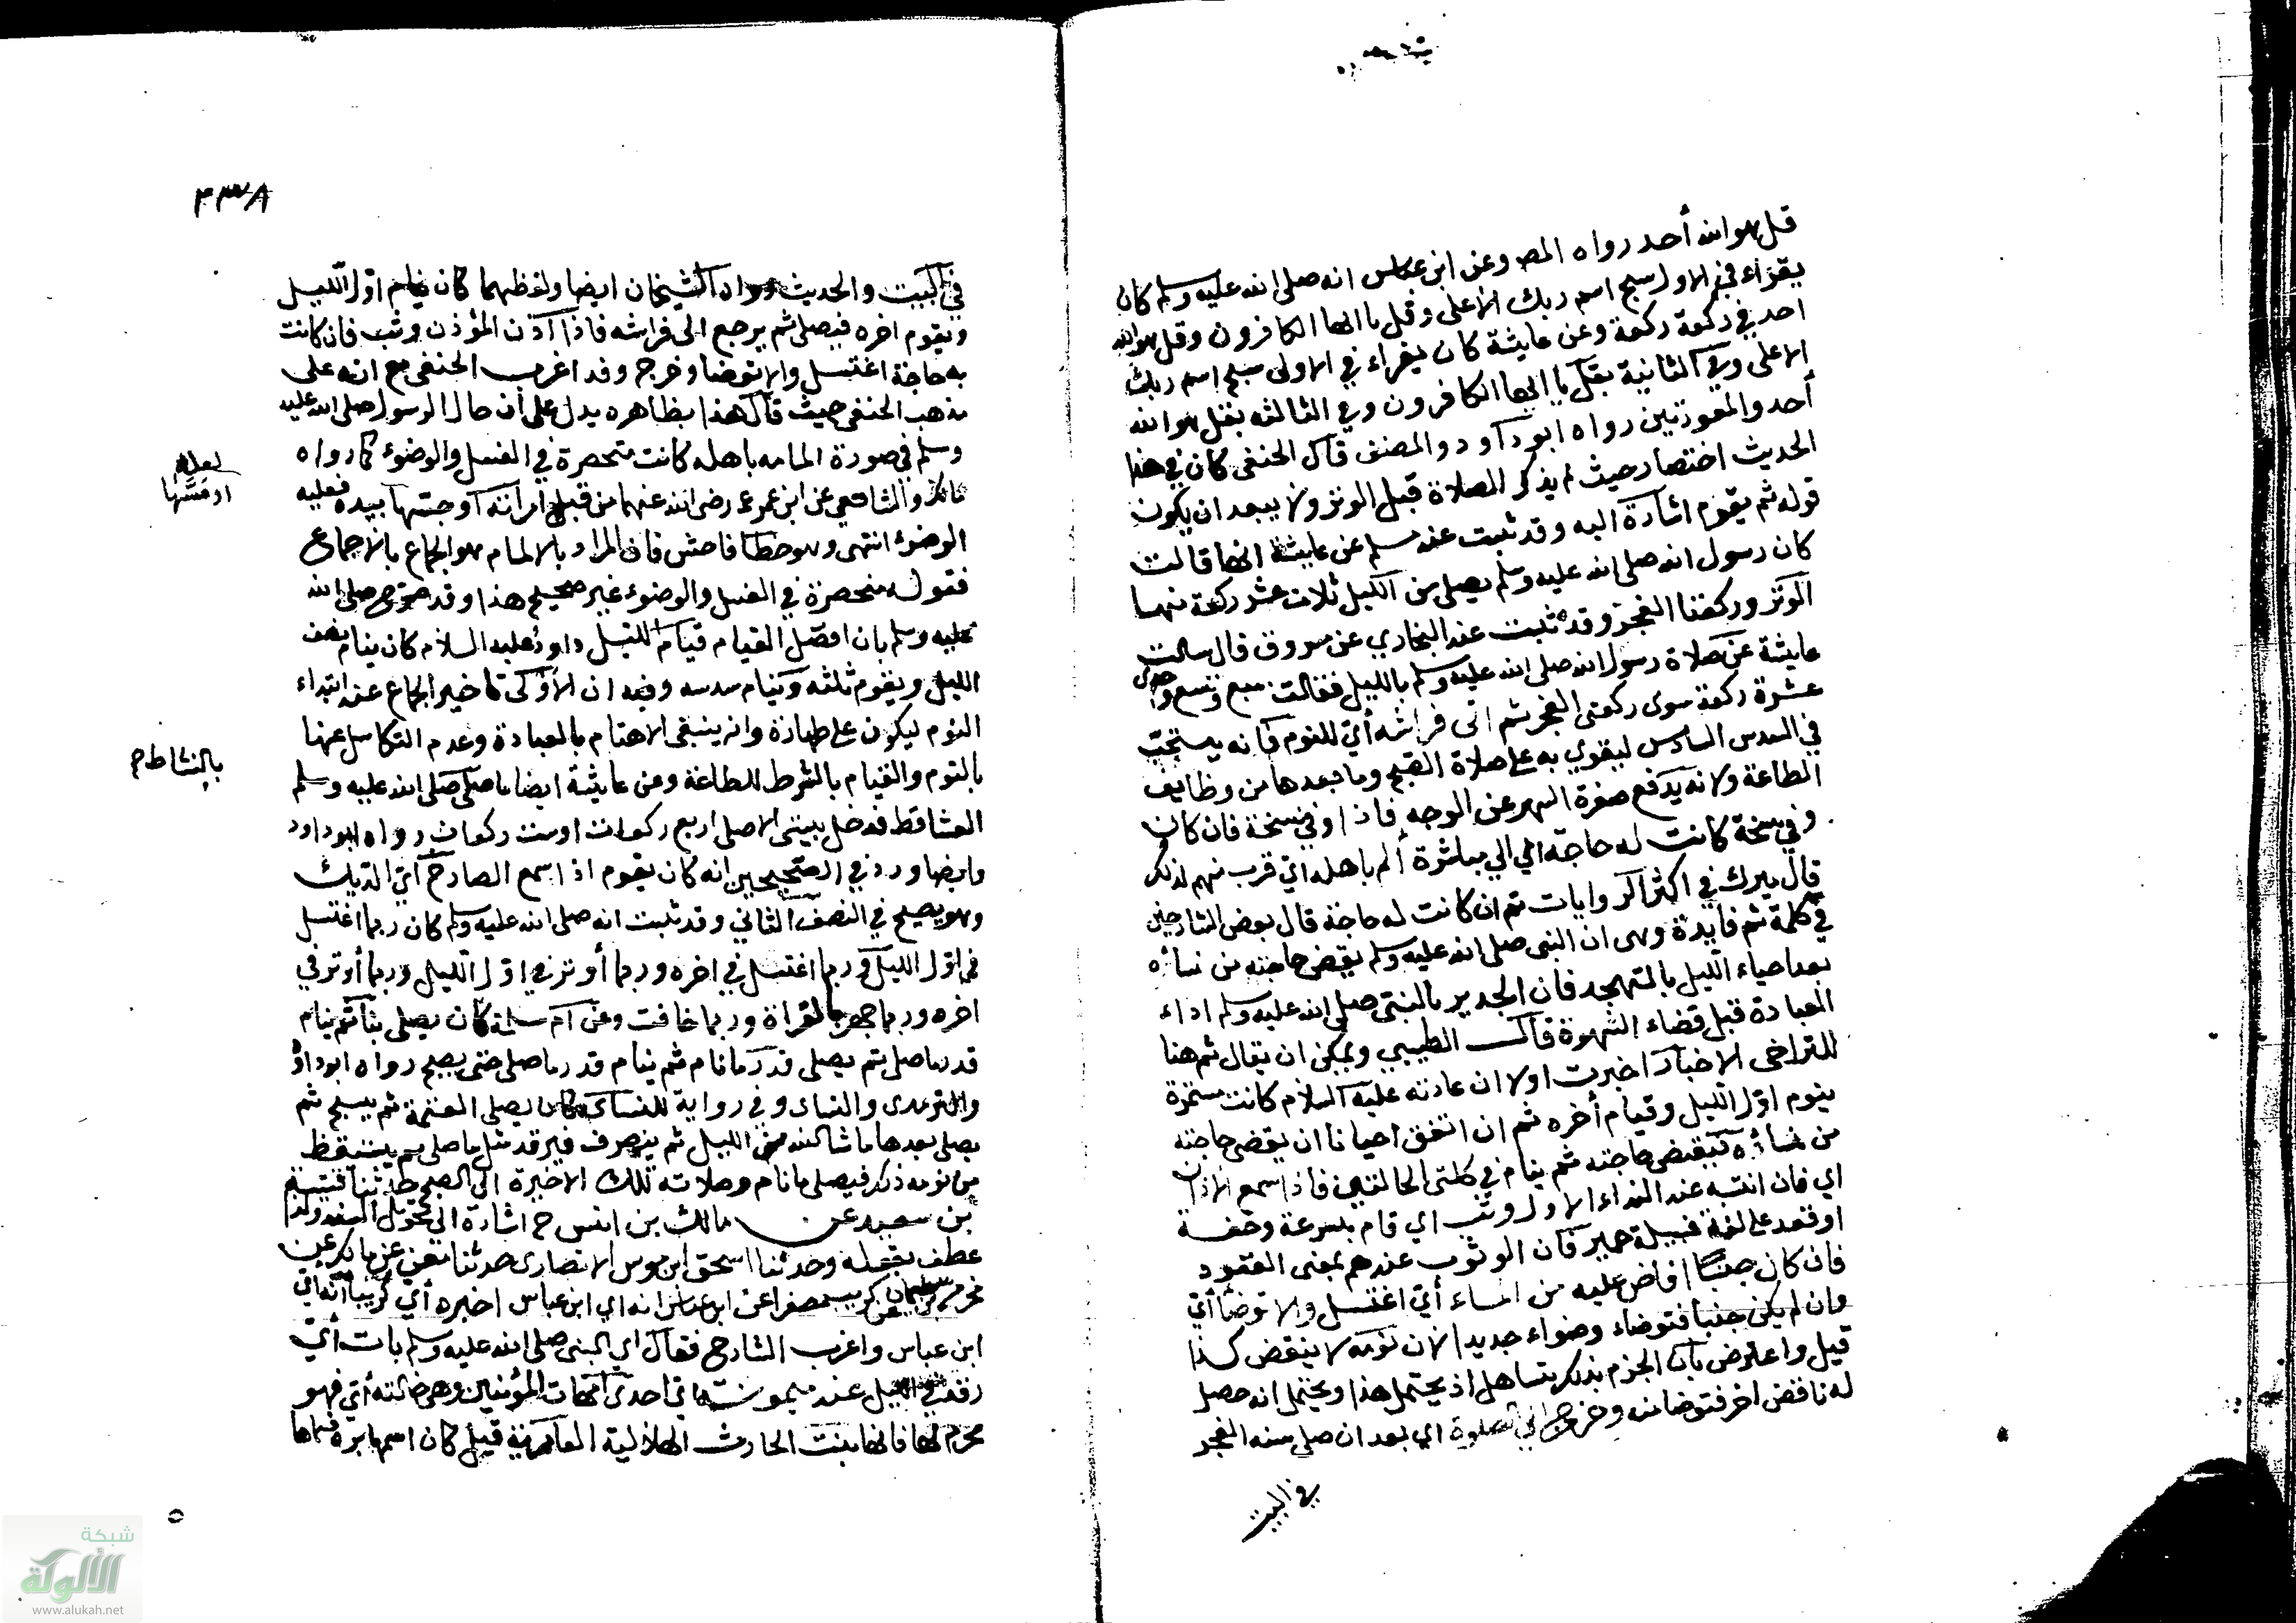 قل هو الله أحد رواه المص وعن ابن عباس انه صلى الله عليه وسلم كان
يقراء في الاول سبح اسم ربك الاعلى وقل يا ايها الكافرون وقل هو الله
احد في ركعة ركعة وعن عايشة كان يقراء في الاولى سبح اسم ربك
الاعلى وفي الثانية بقل يا ايها الكافرون وفي الثالثه بقل هو الله
أحد والمعوذتين رواه ابو داود والمصنف قال الحنفي كان في هذا
الحديث اختصار حيث لم يذكر الصلاة قبل الوتر ولا يبعد ان يكون
قوله ثم يقوم اشارة اليه وقد ثبت عند مسلم عن عايشة انها قالت
كان رسول الله صلى الله عليه وسلم يصلي من الليل ثلاث عشر ركعة منها
الوتر وركعتا الفجر وقد ثبت عند البخاري عن مسروق قال سالت
عايشة عن صلاة رسول الله صلى الله عليه وسلم بالليل فقالت سبع وتسع واحدى
عشرة ركعة سوى ركعتي الفجر ثم اتى فراشه أي للنوم فانه يستحب
في السدس السادس ليقوي به على صلاة الصبح وما بعدها من وظايف
الطاعة ولانه يدفع صفرة السهر عن الوجه فاذا وفي نسخة فان كان
وفي نسخة كانت له حاجة اي الي مباشرة ألم باهله اي قرب منهم لذلك
قال ميرك في اكثر الروايات ثم ان كانت له حاجة قال بعض الشارحين
في كلمة ثم فايدة وهي ان النبي صلى الله عليه وسلم يقضي حاجته من نسائه
بعد احياء الليل بالتهجد فان الجدير بالنبي صلى الله عليه وسلم اداء
العبادة قبل قضاء الشهوة قال الطيبي ويمكن ان يقال ثم هنا
للتراخى الاخبار اخبرت اولا ان عادته عليه السلام كانت مستمرة
بنوم اول الليل وقيام أخره ثم ان اتفق احيانا ان يقضي حاجته
من نسائه فيقضي حاجته ثم ينام في كلتى الحالتين فاذا سمع الاذان
اي فان انتبه عند النداء الاول وثب اي قام بسرعة وخفة
او قعد على لغة قبيلة حمير فان الوثوب عندهم بمعنى القعود
فان كان جنبا افاض عليه من الماء أي اغتسل والا توضأ أي
وان لم يكن جنبا فتوضاء وضواء جديدا لان نومه لا ينقض كذا
قيل واعترض بان الجزم بذلك تساهل اذ يحتمل هذا ويحتمل انه حصل
له ناقض اخر فتوضا منه وخرج الي الصلوة اي بعد ان صلى سنه الفجر
في البيت
٤٣٨
في البيت والحديث رواه الشيخان ايضا ولفظهما كان ينام اول الليل
ويقوم اخره فيصلي ثم يرجع الى فراشه فاذا اذن المؤذن وثب فان كانت
به حاجة اغتسل والا توضا وخرج وقد اغرب الحنفي مع انه على
مذهب الحنفي حيث قال هذا بظاهره يدل على أن حال الرسول صلى الله عليه
وسلم في صورة المامه باهله كانت منحصرة في الغسل والوضوء كما رواه
مالك والشافعي عن ابن عمر رضى الله عنهما من قبل امرأته او جسها بيده فعليه
لعله
او مسّها
الوضوء انتهى وهو خطا فاحش فان المراد بالالمام هو الجماع بالاجماع
فقوله منحصرة في الغسل والوضوء غير صحيح هذا وقد صرح صلى الله
عليه وسلم بان افضل القيام قيام الليل داود عليه السلام كان ينام نصف
الليل ويقوم ثلثه وينام سدسه وفيه ان الأولى تاخير الجماع عن ابتداء
النوم ليكون على طهارة وانه ينبغي الاهتمام بالعبادة وعدم التكاسل عنها
بالنوم والقيام بالشرط للطاعة وعن عايشة ايضا ما صلى صلى الله عليه وسلم
بالنشاط ح
العشا قط فدخل بيتي الا صلى اربع ركعات او ست ركعات رواه ابو داود
وايضا ورد في الصحيحين انه كان يقوم اذا سمع الصارخ أي الديك
وهو يصيح في النصف الثاني وقد ثبت انه صلى الله عليه وسلم كان ربما اغتسل
في اول الليل وربما اغتسل في اخره وربما أوتر في اول الليل وربما أوتر في
اخره وربما جهر بالقراة وربما خافت وعن ام سلمة كان يصلي بنا ثم ينام
قدر ما صلى ثم يصلى قدر ما نام ثم ينام قدر ما صلى حتى يصبح رواه ابو داود
والترمدى والنساى وفي رواية للنساى كان يصلي العتمة ثم يسبح ثم
يصلي بعدها ما شا الله من الليل ثم ينصرف فيرقد مثل ما صلى ثم يستيقظ
من نومه ذلك فيصلي ما نام وصلاته تلك الاخيرة الى الصبح حدثنا قتيبة
بن سعيد عن مالك بن انس ح اشارة الى تحويل السند ولذا
عطف بقوله وحدثنا اسحق ابن موس الانصارى حدثنا معن عن مالك عن
مخرمة بن سليمان عن كريب مصغرا عن ابن عباس انه اي ابن عباس اخبره أي كريبا انه أي
ابن عباس واغرب الشارح فقال اي النبي صلى الله عليه وسلم بات أي
رقد في الليل عند ميمونة اي احدى امهات المؤمنين وهي خالته أي فهو
محرم لها فانها بنت الحارث الهلالية العامرية قيل كان اسمها برة فسماها
شبكة
الألوكة
www.alukah.net